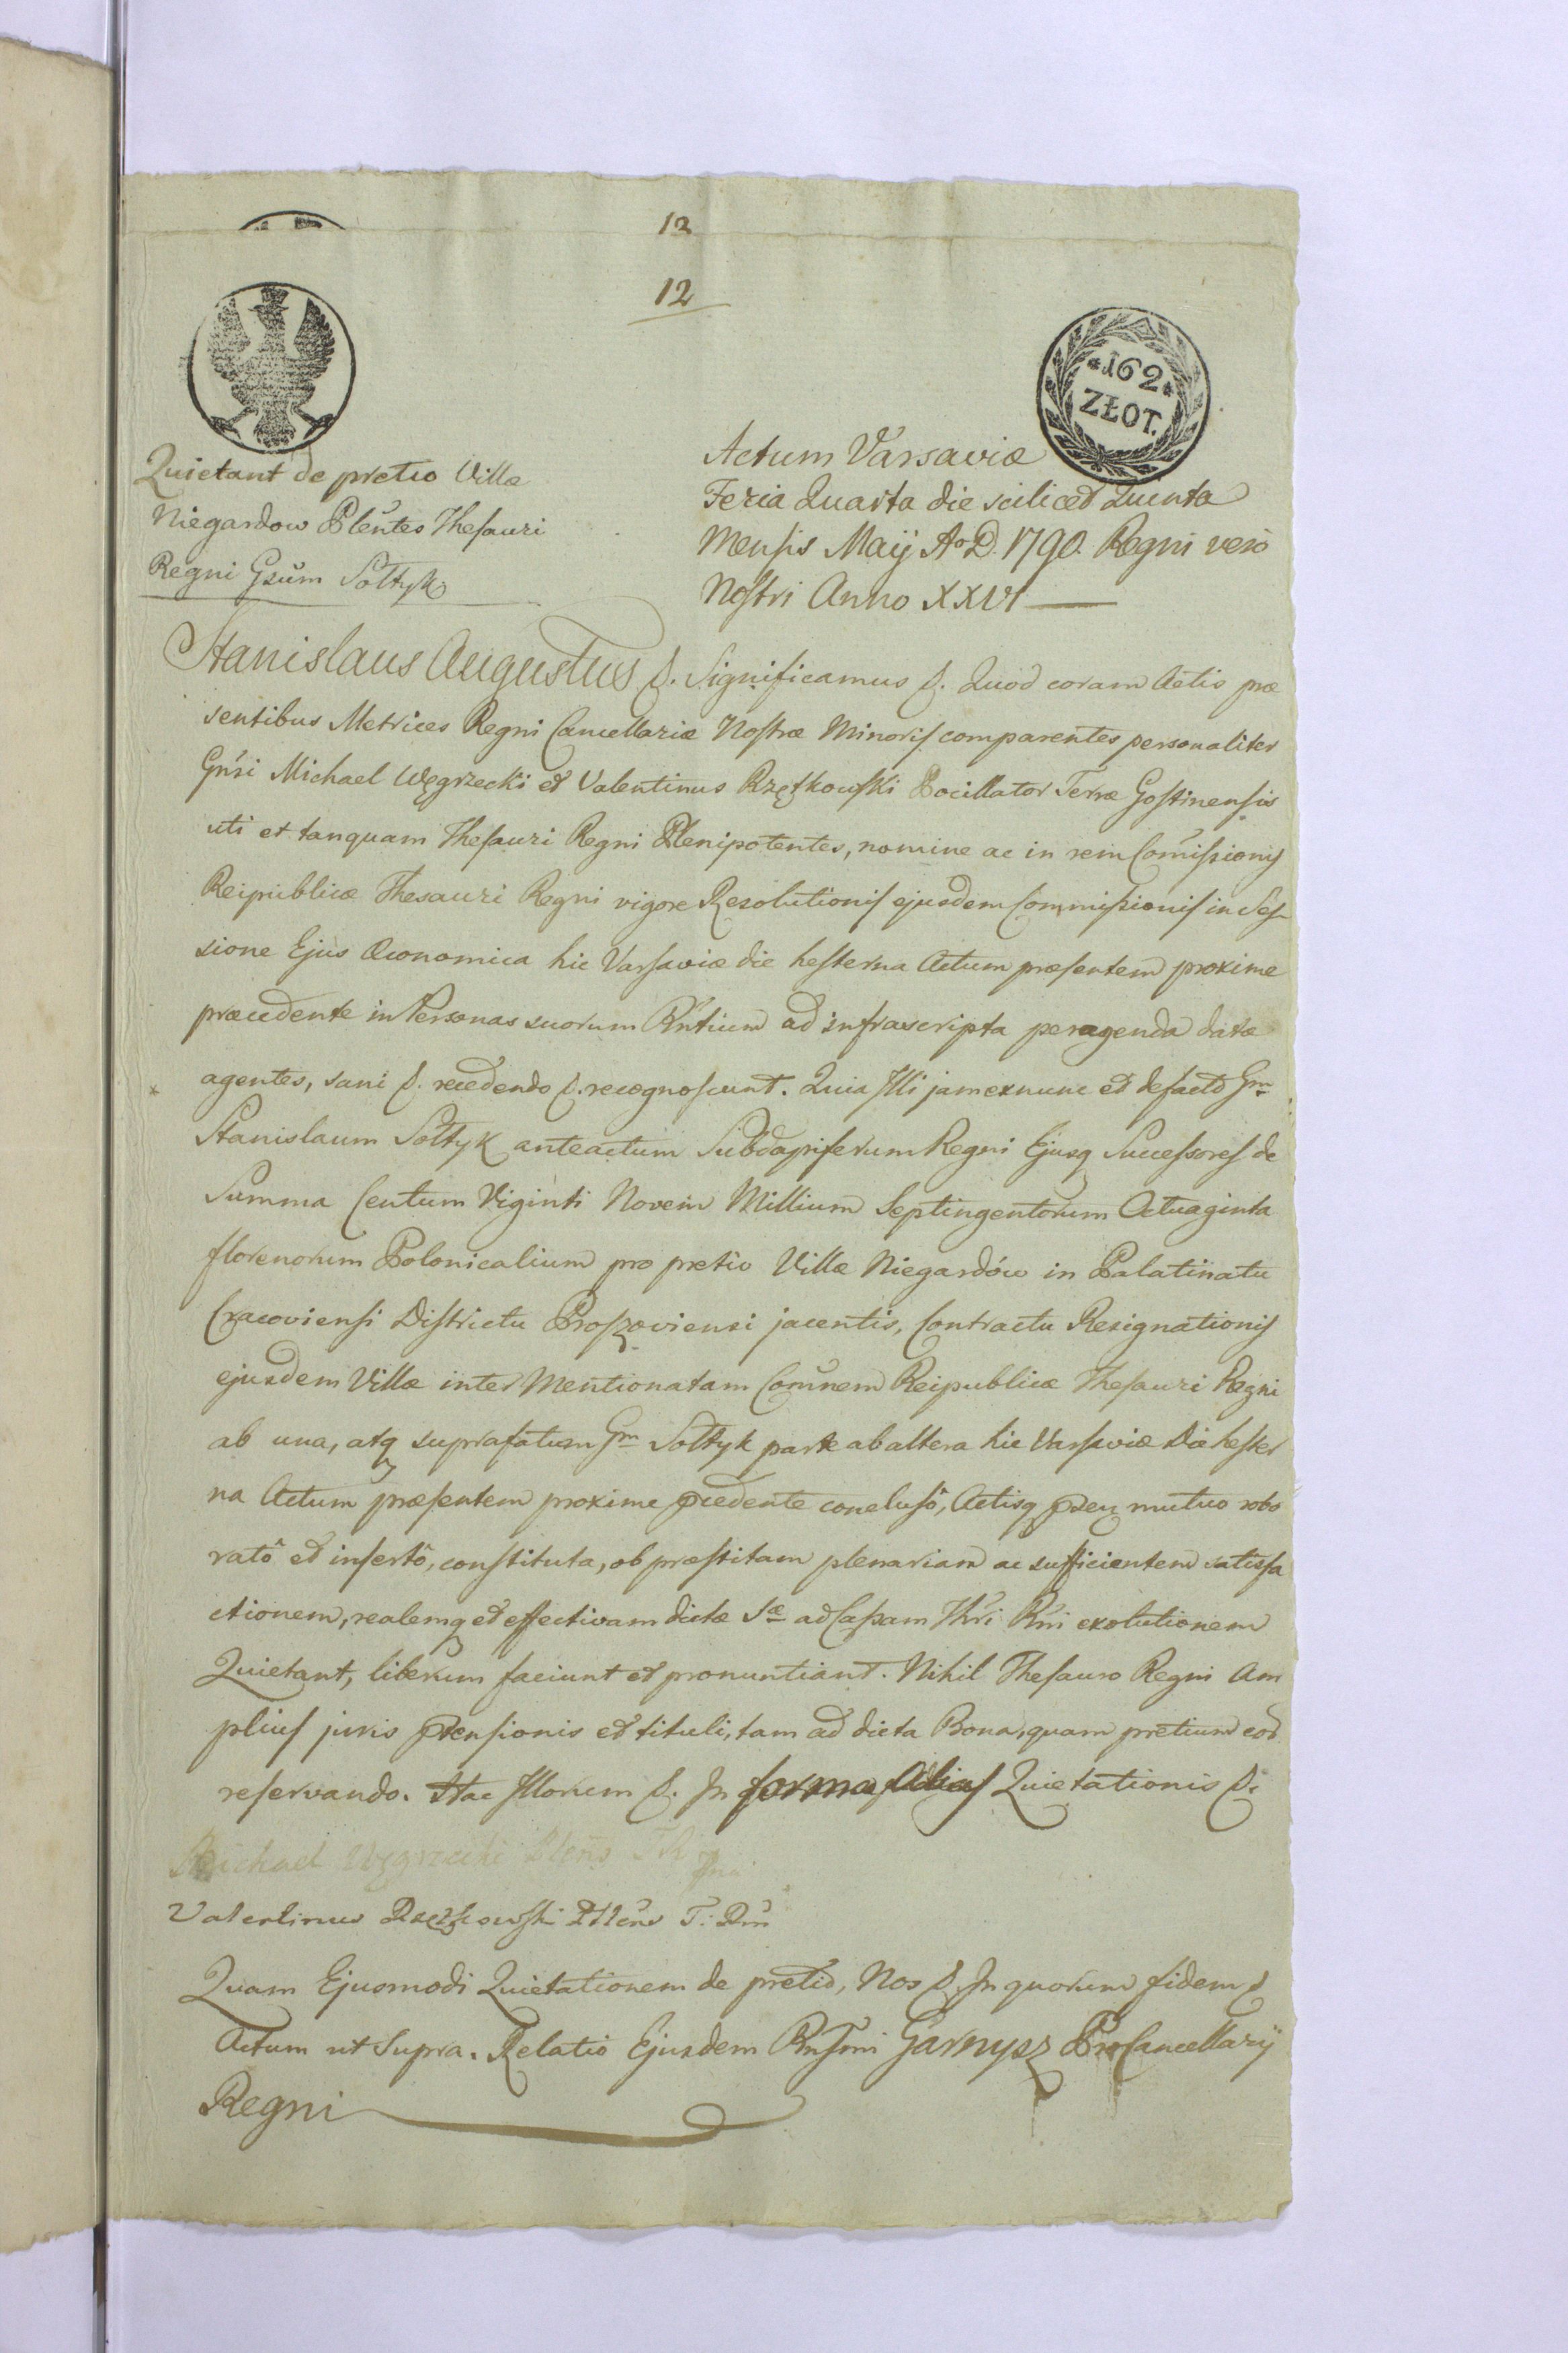 12
12
*162*
ZŁOT.
Quietant de pretio Villæ
Niegardow Plentes Thesauri
Regni Gsum Sołtyk
Actum Varsaviæ
Feria Quarta die scilicet Quinta
Mensis Maij Ao D. 1790. Regni vero
Nostri Anno XXVI
Stanislaus Augustus &. Significamus &. Quod coram Actis præ
sentibus Metrices Regni Cancellariæ Nostræ Minoris comparentes personaliter
Gnsi Michael Węgrzecki et Valentinus Rzętkowski Pocillator Terræ Gostinensis
uti et tanquam Thesauri Regni Plenipotentes, nomine ac in rem Comissionis
Reipublicæ Thesauri Regni vigore Resolutionis ejusdem Commissionis in Ses
sione Ejus Œconomica hic Varsaviæ die hesterna Actum præsentem proxime
præcedente in Personas suorum Rntium ad infrascripta peragenda datæ
agentes, sani &. recedendo &. recognoscunt. Quia Illi jam exnunc et defacto Gm
Stanislaum Sołtyk anteactum Subdapiferum Regni Ejusq Successores de
Summa Centum Viginti Novem Millium Septingentorum Octuaginta
florenorum Polonicalium pro pretio Villæ Niegardów in Palatinatu
Cracoviensi Districtu Proszoviensi jacentis, Contractu Resignationis
ejusdem Villæ inter Mentionatam Comnem Reipublicæ Thesauri Regni
ab una, atq suprafatum Gm Sołtyk parte ab altera hic Varsaviæ Die hester
na Actum præsentem proxime pcedente conclusô, Actisq mutuo robo
ratô et insertô, constituta, ob præstitam plenariam ac sufficientem satisfa
ctionem, realemq et effectivam dictæ Sæ ad Cassam Thri Rni exolutionem
Quietant, liberum faciunt et pronuntiant. Nihil Thesauro Regni Am
plius juris ptensionis et tituli, tam ad dicta Bona, quam pretium eor
reservando. Hac Illorum &. In forma Quietationis &.
Michael Węgrzecki Plens
Valentinus Rzętkowski Plens T: Rni
Quam Ejusmodi Quietationem de pretio, Nos &. In quorum fidem &
Actum ut Supra. Relatio Ejusdem Garnysz ProCancellarij
Regni